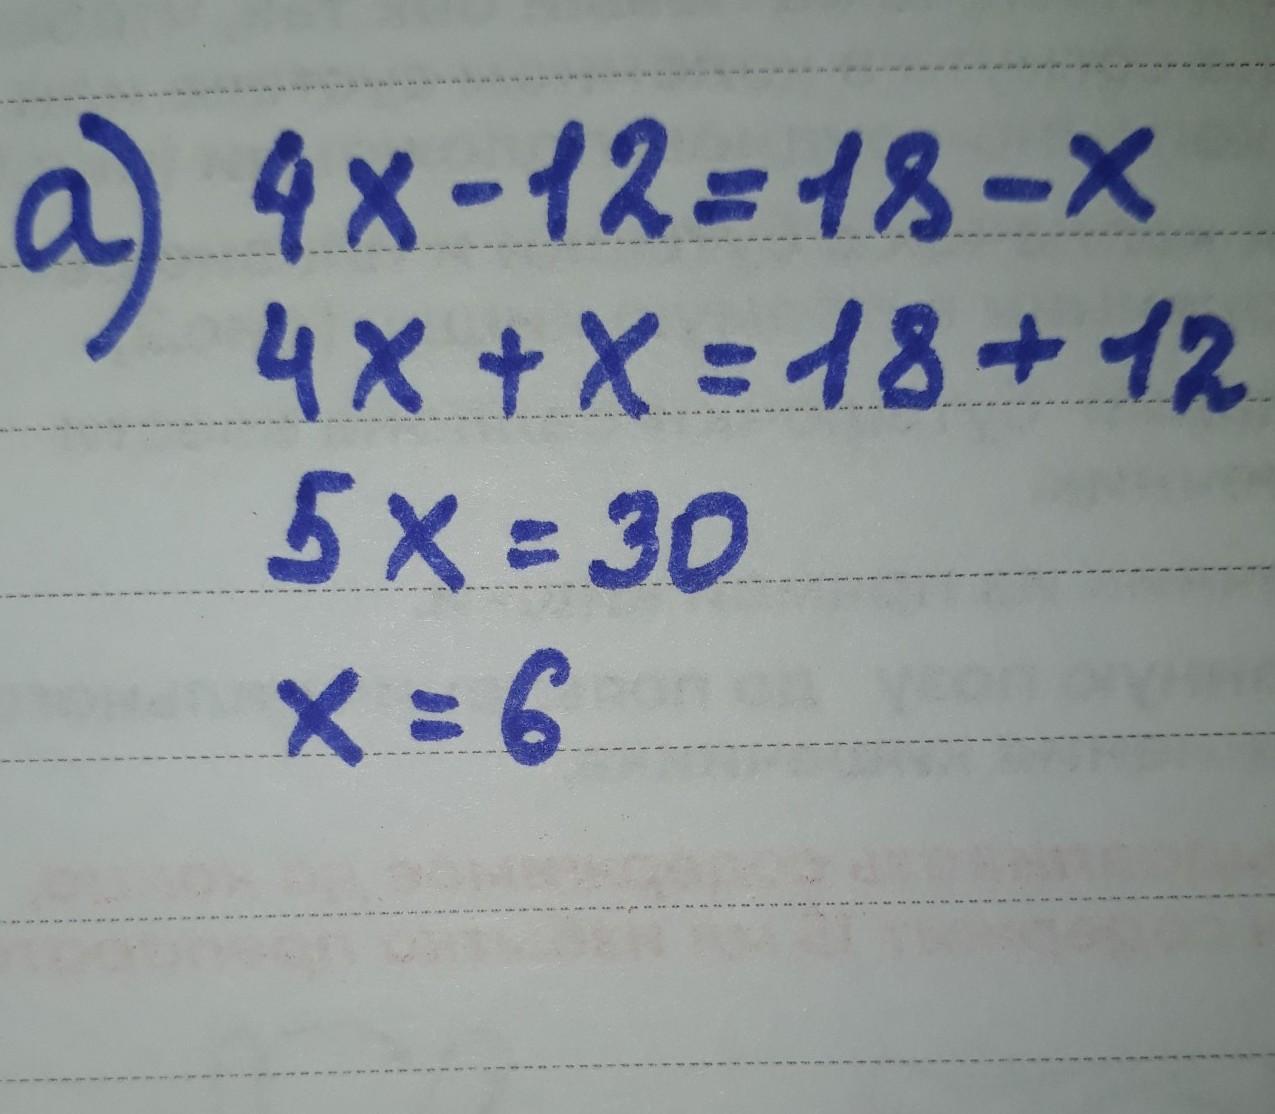 а) 4x-12=18-x
4x+x=18+12
5x=30
x=6